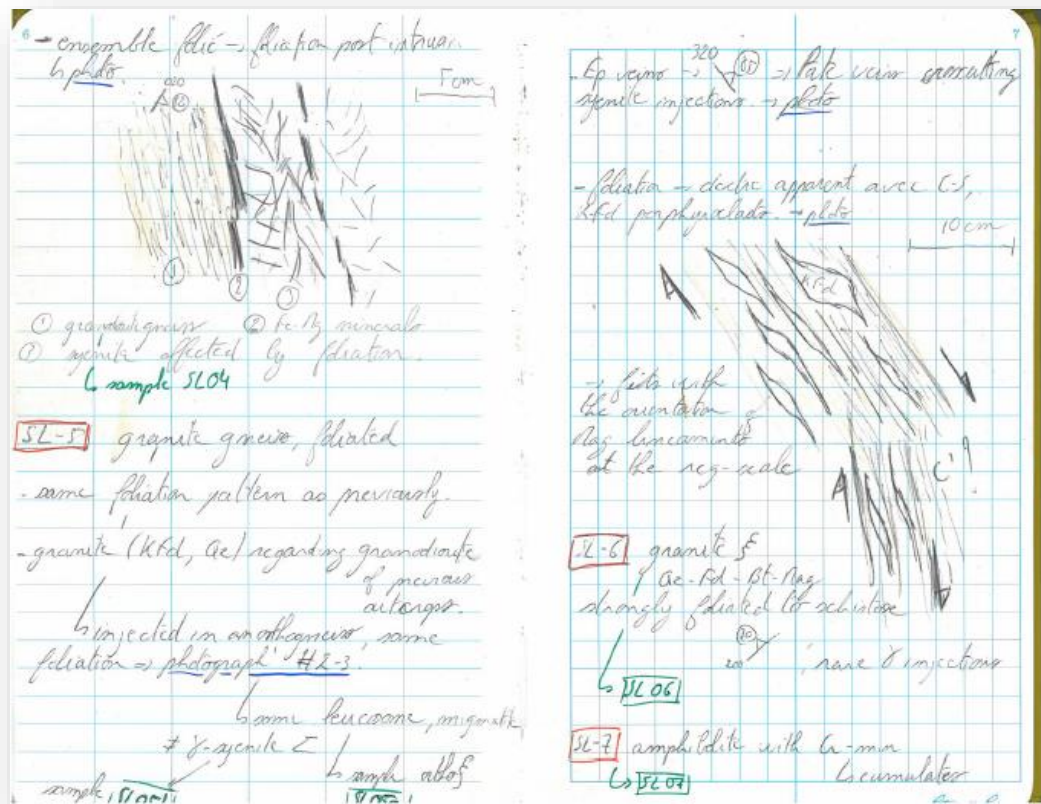 6
- ensemble folié → foliation post intrusi.
↳ photo.
5 cm
① ② ③
① gneiss ② Fe-Mg minerals
③ syenite affected by foliation.
↳ sample SL04
SL-5 granite gneiss, foliated
- same foliation pattern as previously.
- granite (KFd, Qz) regarding granodiorite
of previous
outcrops.
↳ injected in an orthogneiss, same
foliation ⇒ photograph #2-3.
↳ some leucosome, migmatite
≠ γ-syenite
↳ sample orthoξ
sample
7
- Ep veins → 320 ⇒ Late veins crosscutting
syenite injections. → photo
- foliation → dextre apparent avec C-S,
KFd porphyroclasts. → photo
10 cm
KFd
→ fits with
the orientation
of
Mag lineaments
at the reg-scale
C'?
SL-6 granite ξ
Qz-Fd-Bt-Mag
strongly foliated to schistose
20
200
, rare γ injections
↳ SL06
SL-7 amphibolite with min
↳ SL07 ↳ cumulates